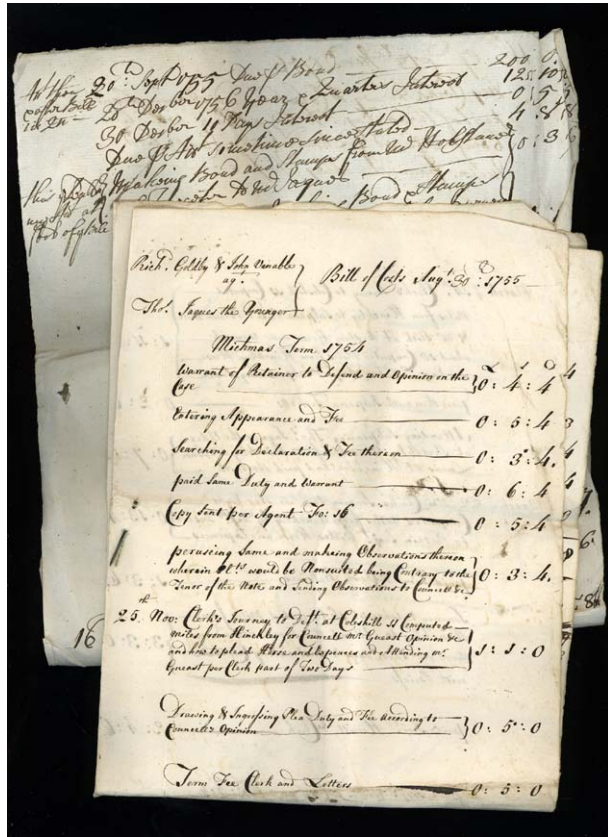 30th Sept 1755 Due p Bond 200 0
Decber 1756 Year & Quarters Interest 12: 10
30 Decber 11 Days Interest 0 5
4 8
Making Bond and Stamps from Mr 0: 3
to Mr Jaques
Bond & Stamps
16
Richd. Goldby & John Venable
ag.
Bill of Costs Augt. 30: 1755
Thos. Jaques the Younger
Michmas Term 1754
Warrant of Retainer to Defend and Opinion on the
Case 0: 4: 4
Entering Appearance and Fee 0: 5: 4
Searching for Declaration & Fee thereon 0: 3: 4.
paid Same Duty and Warrant 0: 6: 4
Copy Sent per Agent Fo: 16 0: 5: 4
peruseing Same and makeing Observations thereon
wherein Plts. would be Nonsuited being Contrary to the
Tenor of the Note and Sending Observations to Councell &c 0: 3: 4.
25th. Nov: Clerk's Journey to Deft. at Coleshill is Computed
miles from Hinckley for Councell Mr. Gueast Opinion &c
and how to plead Horse and Expences and Attending Mr.
Gueast per Clerk part of Two Days 1: 1: 0
Drawing & Ingrossing Plea Duty and Fee According to
Councell's Opinion 0: 5: 0
Term Fee Clerk and Letters 0: 5: 0